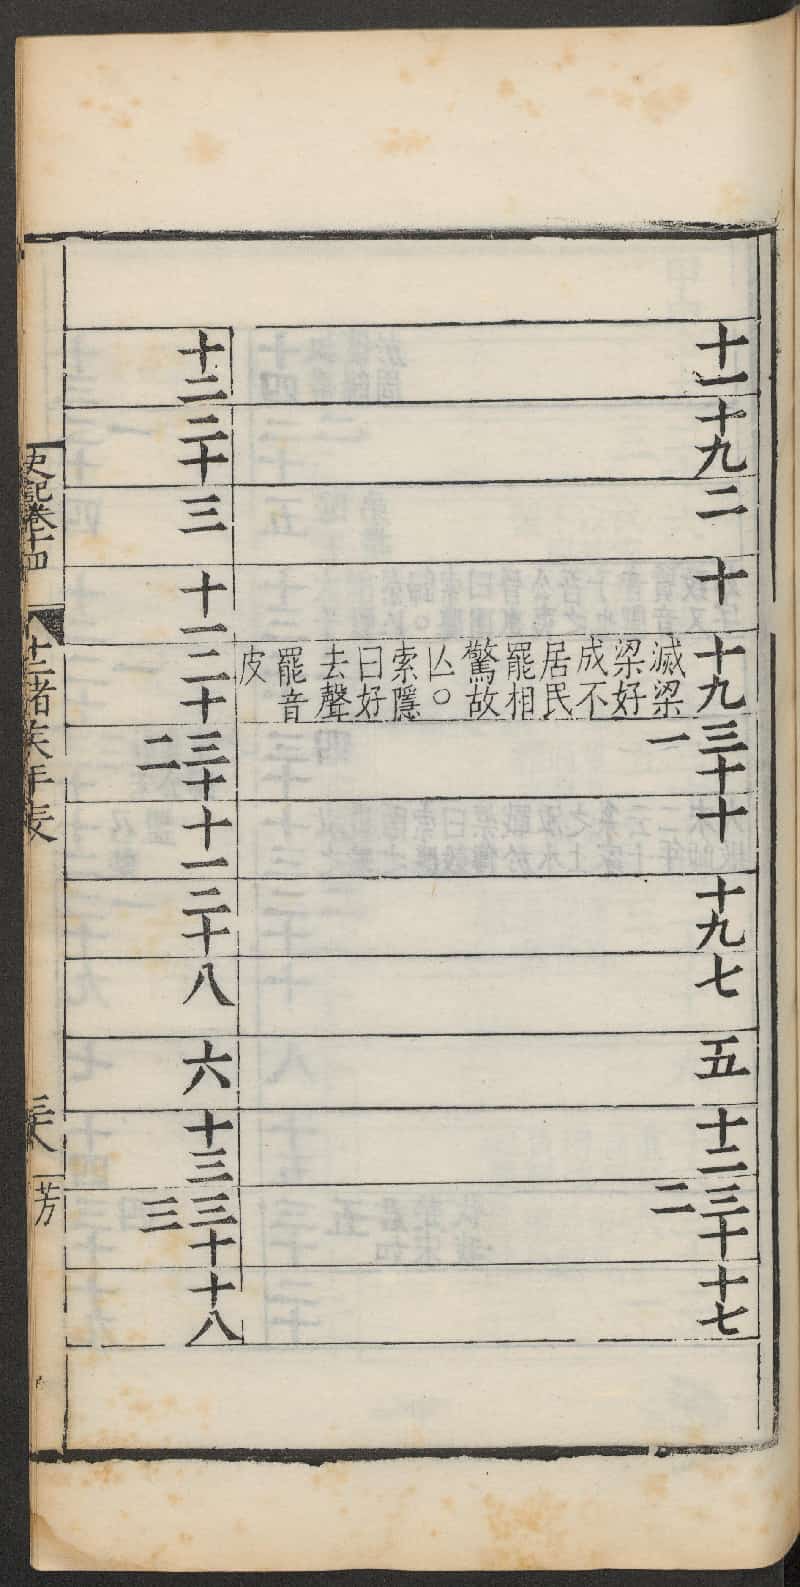 十一
十九
二
十
十九
滅梁
梁好
成不
居民
罷相
驚故
亾〇
索隱
曰好
去聲
罷音
皮
三十一
十
十九
七
五
十二
三十二
十七
十二
二十
三
十一
二十
三十二
十一
二十
八
六
十三
三十三
十八
史記卷十四
十二諸矦年表
芳